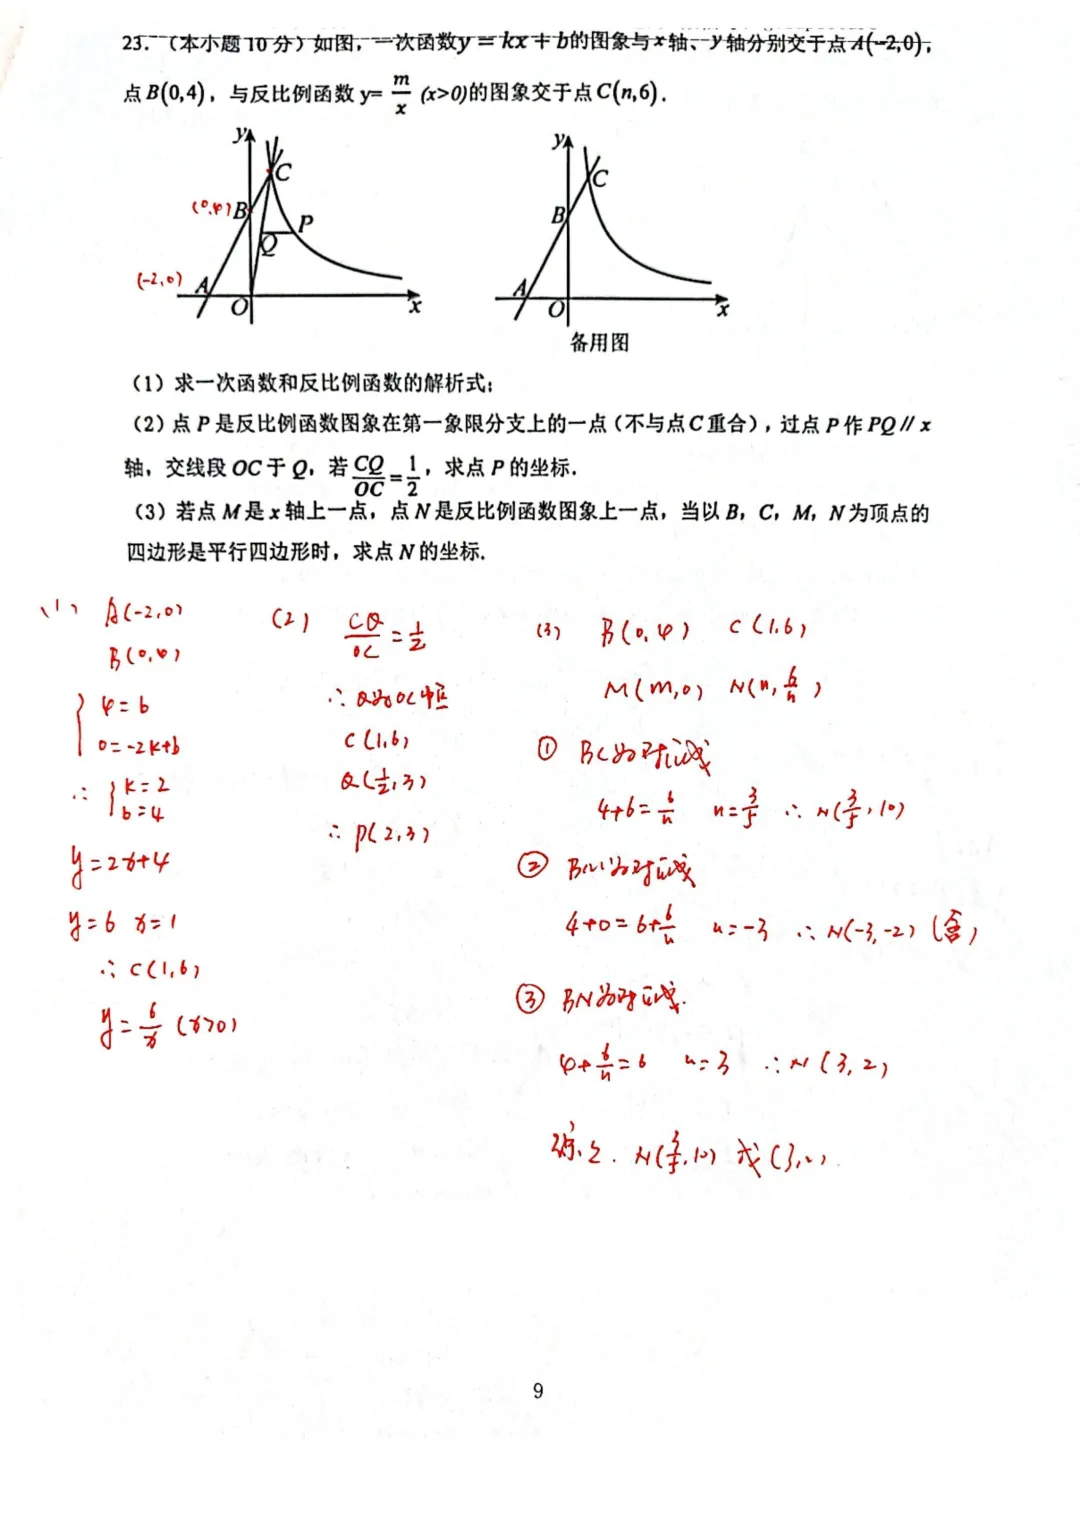 23.（本小题10分）如图，一次函数y = kx + b的图象与x轴、y轴分别交于点A(-2,0)，
点B(0,4)，与反比例函数 y= m/x (x>0)的图象交于点C(n,6).
y
C
(0,4) B
P
Q
(-2,0) A
O
x
y
C
B
A
O
x
备用图
（1）求一次函数和反比例函数的解析式；
（2）点P是反比例函数图象在第一象限分支上的一点（不与点C重合），过点P作PQ∥x
轴，交线段OC于Q，若 CQ/OC = 1/2，求点P的坐标.
（3）若点M是x轴上一点，点N是反比例函数图象上一点，当以B，C，M，N为顶点的
四边形是平行四边形时，求点N的坐标.
(1) A(-2,0)
B(0,4)
{ 4=b
0=-2k+b
∴ { k=2
b=4
y=2x+4
y=6 x=1
∴ C(1,6)
y=6/x (x>0)
(2) CQ/OC = 1/2
∴ Q为OC中点
C(1,6)
Q(1/2,3)
∴ P(2,3)
(3) B(0,4) C(1,6)
M(m,0) N(n,6/n)
① BC为对角线
4+6=6/n n=3/5 ∴ N(3/5,10)
② BM为对角线
4+0=6+6/n n=-3 ∴ N(-3,-2) (舍)
③ BN为对角线.
4+6/n=6 n=3 ∴ N(3,2)
综上. N(3/5,10) 或 (3,2).
9